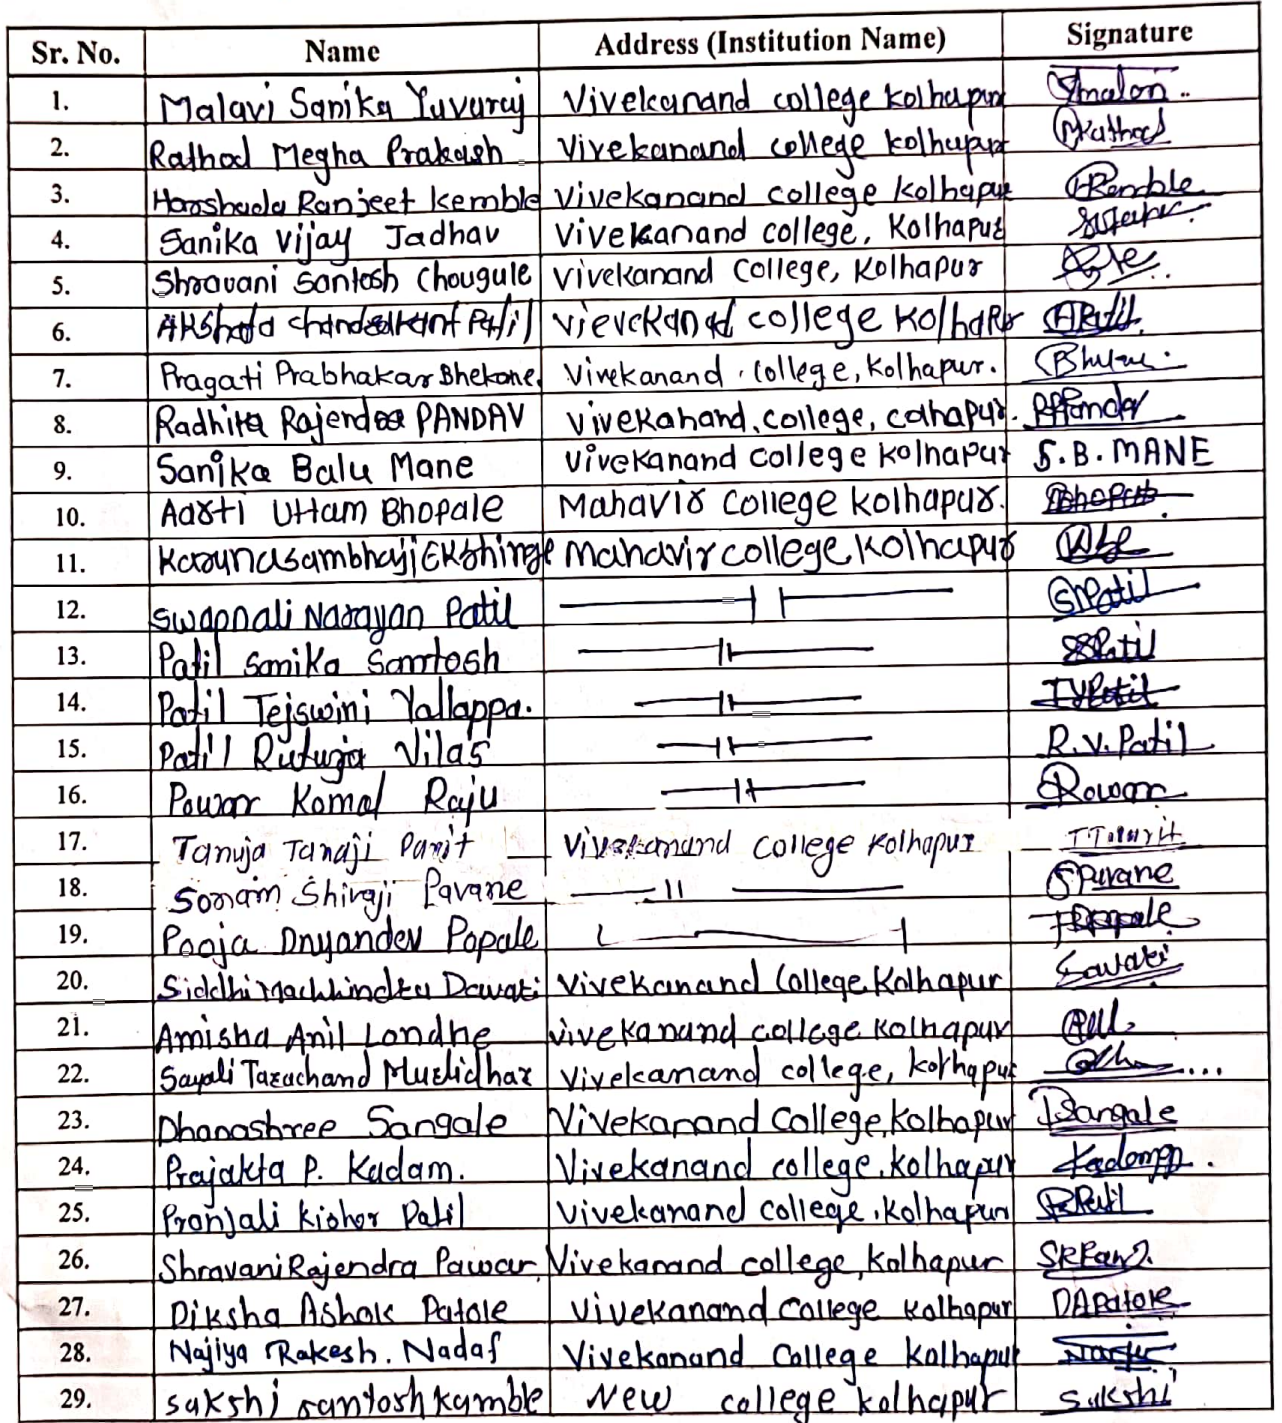 Sr. No. Name Address (Institution Name) Signature
1. Malavi Sanika Yuvuraj Vivekanand college Kolhapur
2. Rathod Megha Prakash Vivekanand college Kolhapur Rathod
3. Harshada Ranjeet Kemble Vivekanand college Kolhapur HKemble
4. Sanika Vijay Jadhav Vivekanand college, Kolhapur
5. Shravani Santosh Chougule Vivekanand College, Kolhapur
6. Akshata Chandrakant Patil Vievekanad college Kolhapur APatil
7. Pragati Prabhakar Bhekane. Vivekanand College, Kolhapur.
8. Radhika Rajendra PANDAV Vivekanand, college, colhapur. RPPandav
9. Sanika Balu Mane Vivekanand College Kolhapur S.B. MANE
10. Aarti Uttam Bhopale Mahavir College Kolhapur. Bhopale
11. Karuna sambhaji Ekshinge Mahavir college, Kolhapur
12. Swapnali Narayan Patil —— 11 —— SNPatil
13. Patil Sanika Santosh —— 11 —— SSPatil
14. Patil Tejswini Yallappa. —— 11 —— TYPatil
15. Patil Rutuja Vilas —— 11 —— R.V. Patil
16. Powar Komal Raju —— 11 —— Powar
17. Tanuja Tanaji Parit Vivekanand College Kolhapur TTParit
18. Sonam Shivaji Pavane —— 11 —— SPavane
19. Pooja Dnyandev Popale Popale
20. Siddhi Machhindra Dawati Vivekanand College, Kolhapur Dawati
21. Amisha Anil Londhe Vivekanand college Kolhapur
22. Sayali Tarachand Murlidhar Vivekanand college, Kolhapur
23. Dhanashree Sangale Vivekanand College, Kolhapur DSangale
24. Prajakta P. Kadam. Vivekanand college, Kolhapur Kadampp.
25. Pranjali Kishor Patil Vivekanand college, Kolhapur PKPatil
26. Shravani Rajendra Pawar Vivekanand college, Kolhapur SRPawar
27. Diksha Ashok Patole Vivekanand College Kolhapur DAPatole
28. Najiya Rakesh. Nadaf Vivekanand College Kolhapur
29. Sakshi santosh kamble New college kolhapur Sakshi